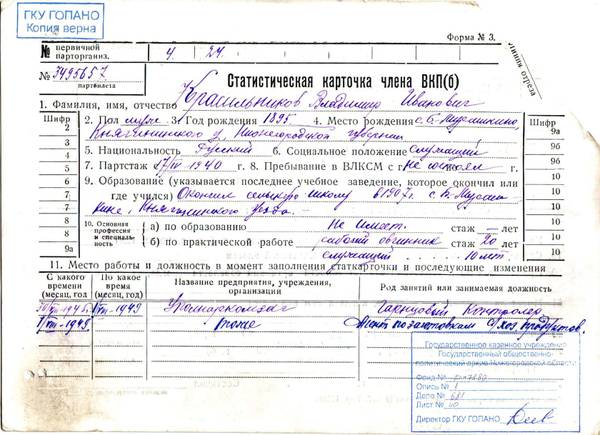 ГКУ ГОПАНО
Копия верна
Форма № 3.
№ первичной парторганиз. 4 24
№ 3495657
партбилета
Статистическая карточка члена ВКП(б)
1. Фамилия, имя, отчество Красильников Владимир Иванович
Шифр
2. Пол муж. 3. Год рождения 1895 4. Место рождения
Княгининского у. Нижегородской губернии
5. Национальность Русский 6. Социальное положение служащий
7. Партстаж 1940 г. 8. Пребывание в ВЛКСМ с не состоял
9. Образование (указывается последнее учебное заведение, которое окончил или
где учился) Окончил сельскую школу в 1907 г.
Княгининского уезда.
10. Основная профессия и специальность
а) по образованию Не имеет. стаж — лет
б) по практической работе стаж 20 лет
служащий 10 лет.
11. Место работы и должность в момент заполнения статкарточки и последующие изменения
С какого времени (месяц, год)
По какое время (месяц, год)
Название предприятия, учреждения, организации
Род занятий или занимаемая должность
Гарнцовый Контролер
Агент по заготовкам
Шифр
2
3
4
5
6
7
8
9а
9а
9б
9б
10
10
10
10
10
Государственное казенное учреждение
Государственный общественно-
политический архив Нижегородской области
Фонд №
Опись № 1
Дело № 681
Лист № 40
Директор ГКУ ГОПАНО